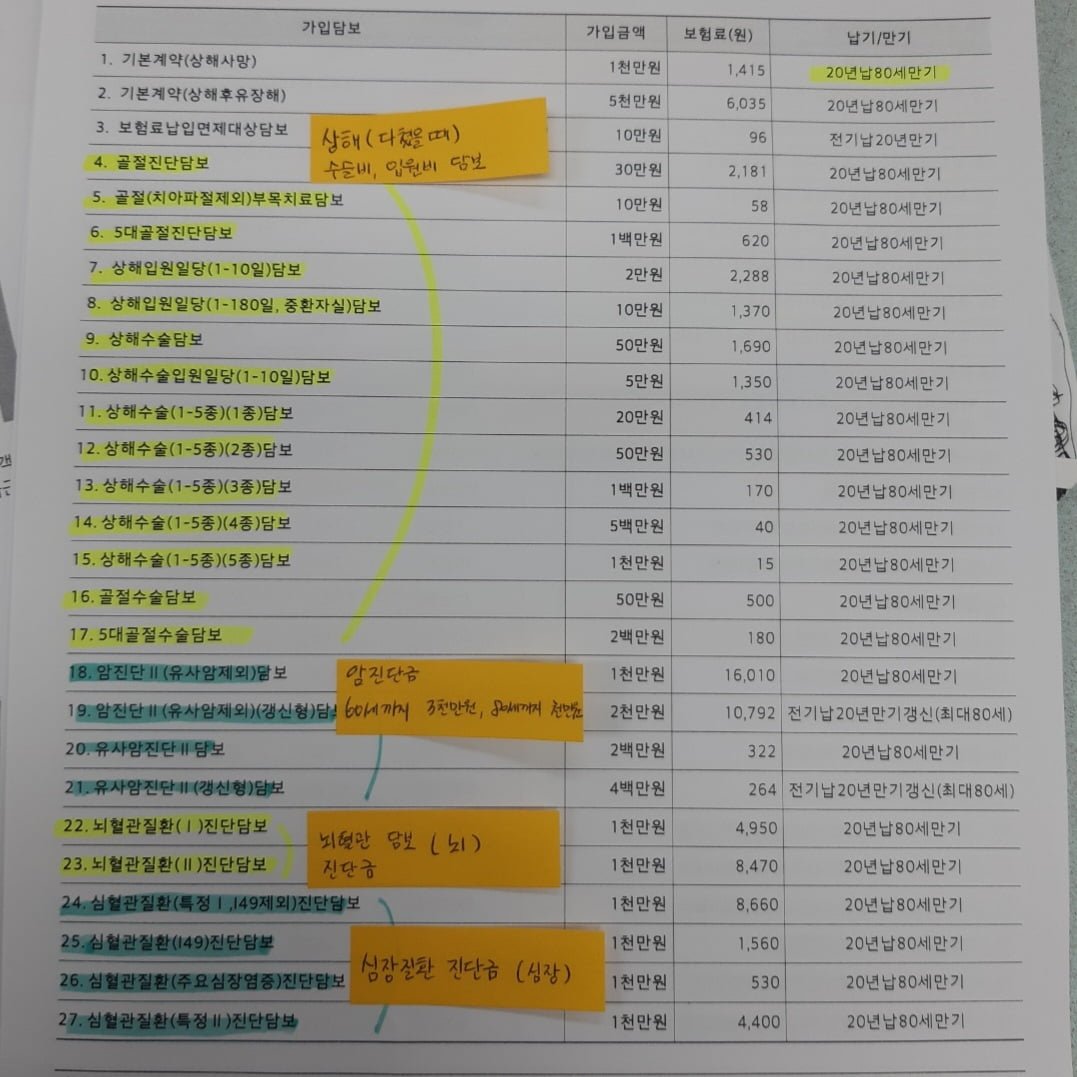 가입담보 가입금액 보험료(원) 납기/만기
1. 기본계약(상해사망) 1천만원 1,415 20년납80세만기
2. 기본계약(상해후유장해) 5천만원 6,035 20년납80세만기
3. 보험료납입면제대상담보 10만원 96 전기납20년만기
상해(다쳤을때)
수술비, 입원비 담보
4. 골절진단담보 30만원 2,181 20년납80세만기
5. 골절(치아파절제외)부목치료담보 10만원 58 20년납80세만기
6. 5대골절진단담보 1백만원 620 20년납80세만기
7. 상해입원일당(1-10일)담보 2만원 2,288 20년납80세만기
8. 상해입원일당(1-180일, 중환자실)담보 10만원 1,370 20년납80세만기
9. 상해수술담보 50만원 1,690 20년납80세만기
10. 상해수술입원일당(1-10일)담보 5만원 1,350 20년납80세만기
11. 상해수술(1-5종)(1종)담보 20만원 414 20년납80세만기
12. 상해수술(1-5종)(2종)담보 50만원 530 20년납80세만기
13. 상해수술(1-5종)(3종)담보 1백만원 170 20년납80세만기
14. 상해수술(1-5종)(4종)담보 5백만원 40 20년납80세만기
15. 상해수술(1-5종)(5종)담보 1천만원 15 20년납80세만기
16. 골절수술담보 50만원 500 20년납80세만기
17. 5대골절수술담보 2백만원 180 20년납80세만기
18. 암진단Ⅱ(유사암제외)담보 1천만원 16,010 20년납80세만기
암진단금
60세까지 3천만원, 80세까지 천만원
19. 암진단Ⅱ(유사암제외)(갱신형)담 2천만원 10,792 전기납20년만기갱신(최대80세)
20. 유사암진단Ⅱ담보 2백만원 322 20년납80세만기
21. 유사암진단Ⅱ(갱신형)담보 4백만원 264 전기납20년만기갱신(최대80세)
22. 뇌혈관질환(Ⅰ)진단담보 1천만원 4,950 20년납80세만기
뇌혈관 담보(뇌)
진단금
23. 뇌혈관질환(Ⅱ)진단담보 1천만원 8,470 20년납80세만기
24. 심혈관질환(특정Ⅰ,I49제외)진단담보 1천만원 8,660 20년납80세만기
25. 심혈관질환(I49)진단담보 1천만원 1,560 20년납80세만기
심장질환 진단금(심장)
26. 심혈관질환(주요심장염증)진단담보 1천만원 530 20년납80세만기
27. 심혈관질환(특정Ⅱ)진단담보 1천만원 4,400 20년납80세만기